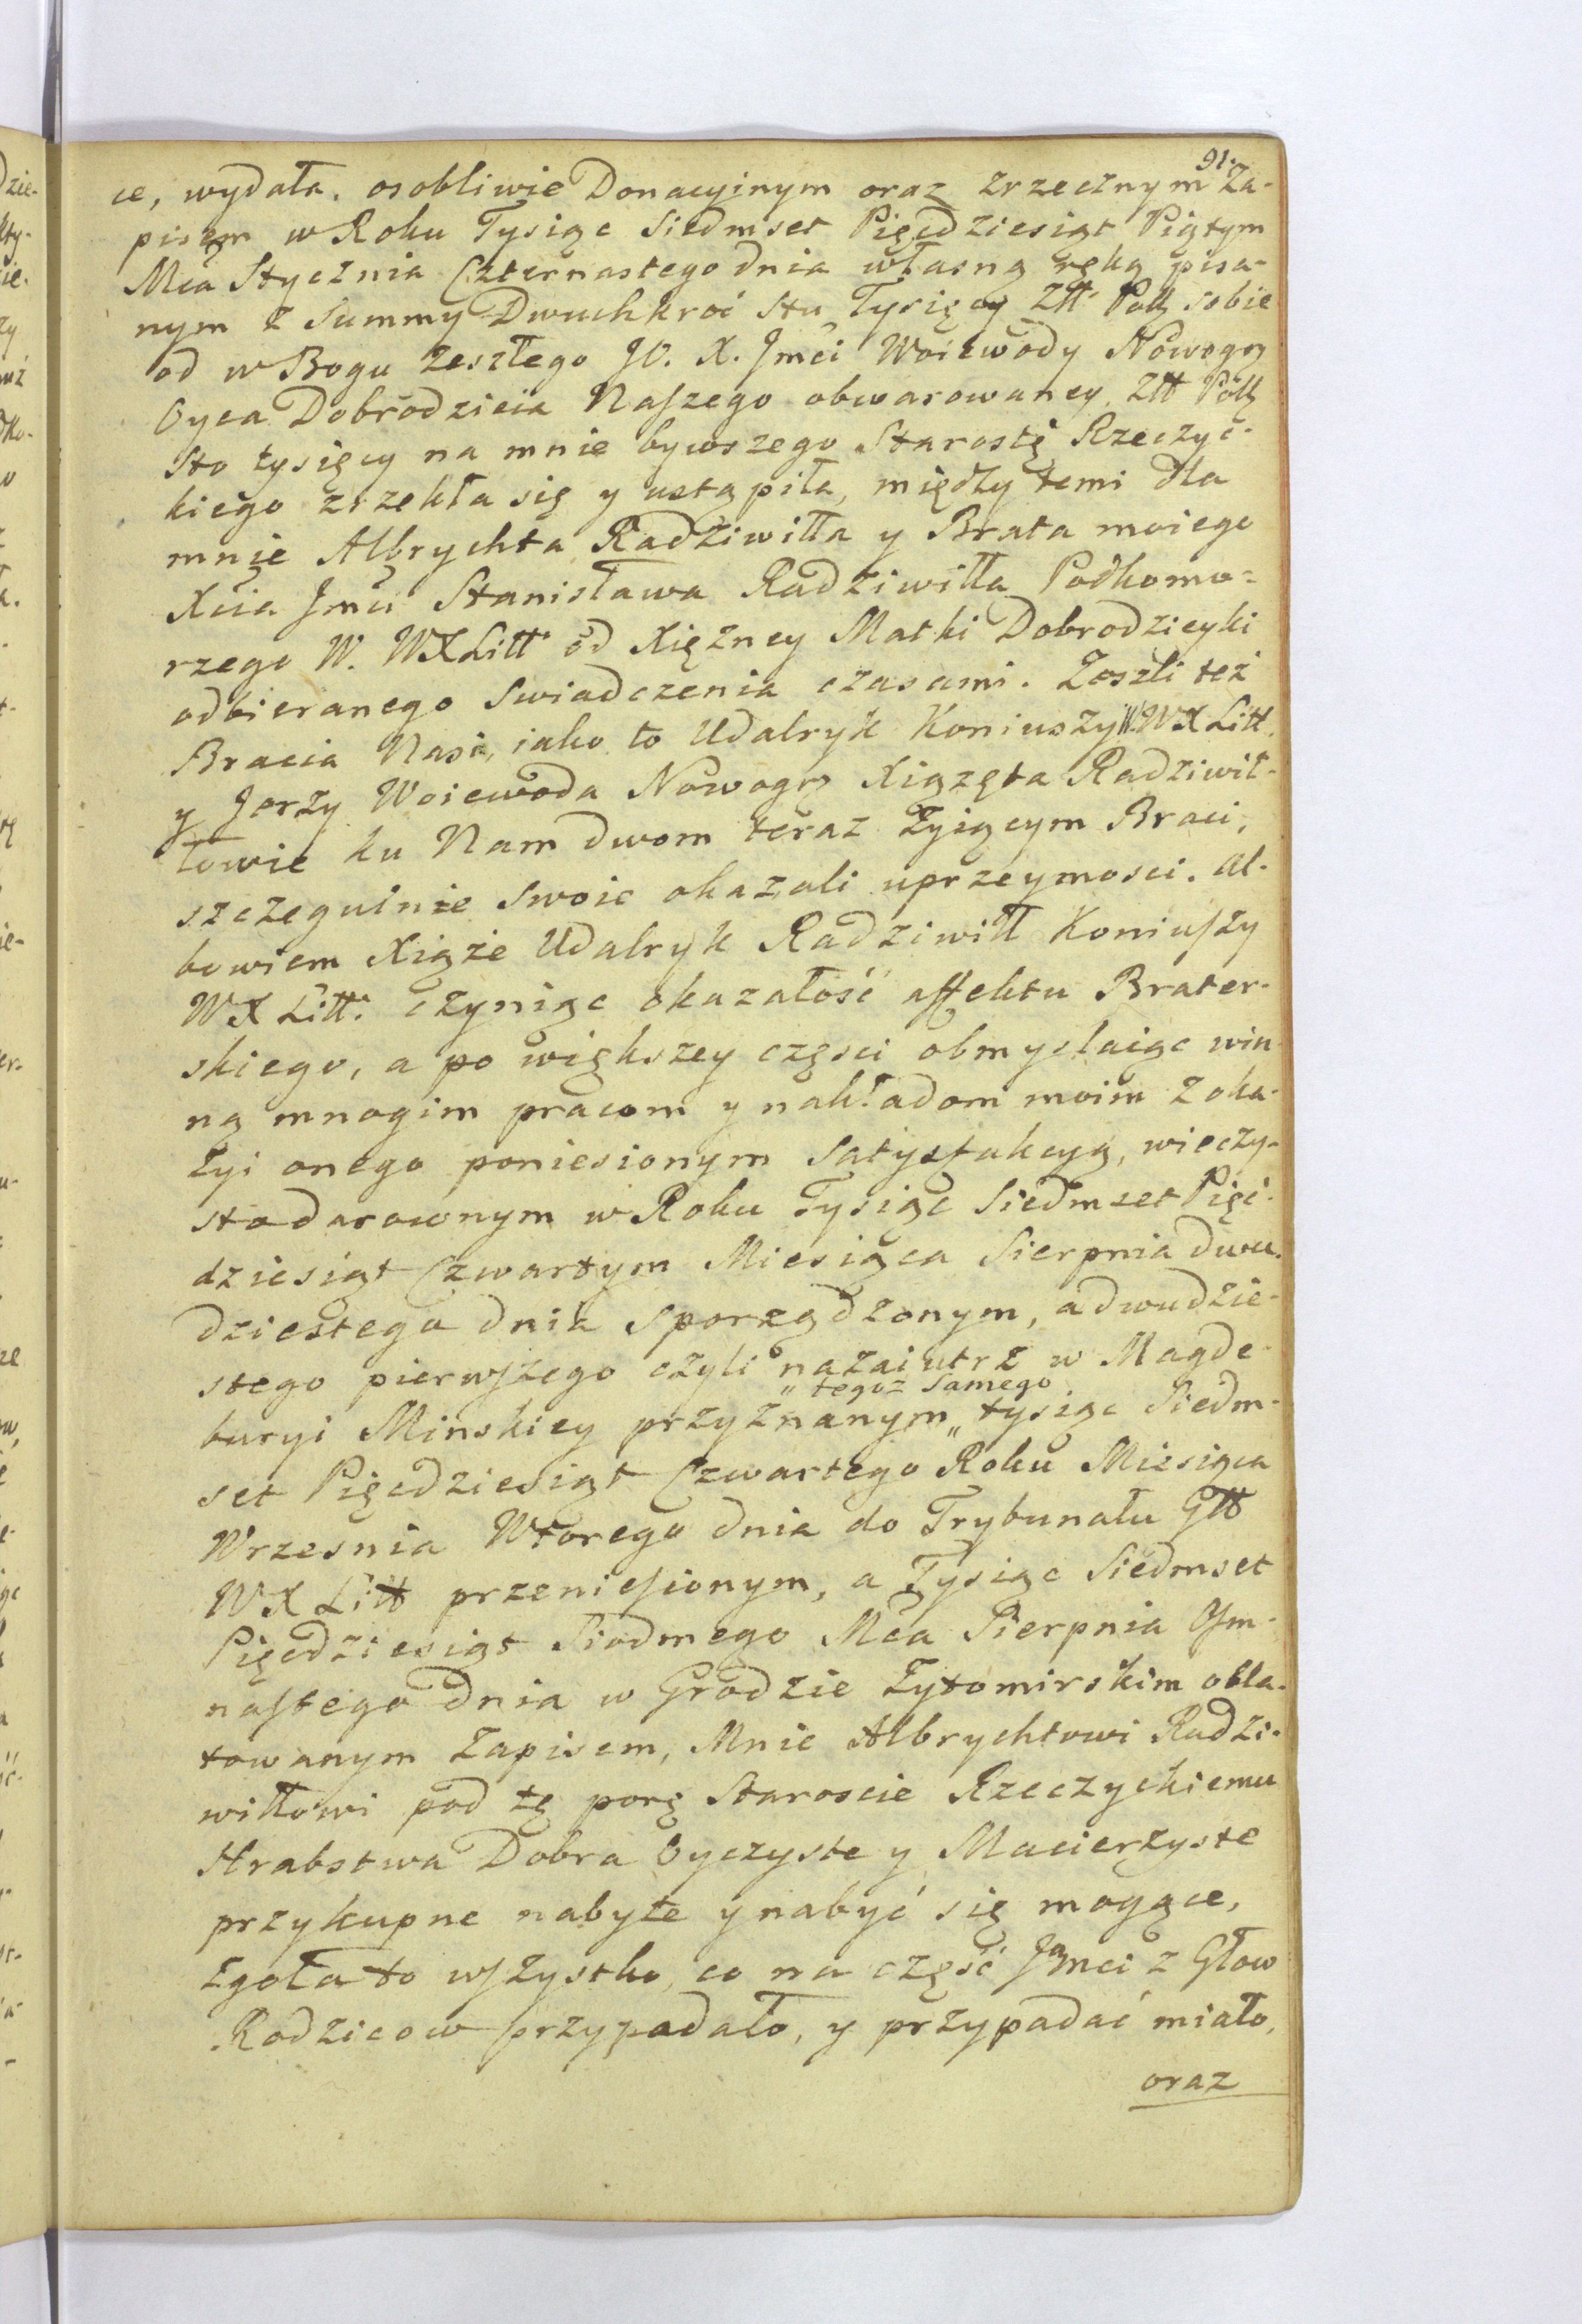 91.
ce, wydała. osobliwie Donacyinym oraz zrzecznym Za-
pisem w Roku Tysiąc Siedmset Pięcdziesiąt Piątym
Mca Stycznia Czternastego dnia własną ręką pisa-
nym z Summy Dwuchkroć Stu Tysięcy Złł Poll sobie
od w Bogu Zeszłego JO. X. Jmci Woiewody Nowogrz
Oyca Dobrodzieia Naszego obwarowaney. Złł Poll
Sto tysięcy na mnie bywszego Starostę Rzeczyc-
kiego zrzekła się y ustąpiła, między temi dla
mnie Albrychta Radziwiłła y Brata moiego
Xcia Jmci Stanisława Radziwiłła Podkomo-
rzego W. WXLitt od Xiężney Matki Dobrodzieyki
odbieranego Swiadczenia czasami. Zeszli też
Bracia Nasi, iako to Udalryk Koniuszy W. WXLitt.
y Jerzy Woiewoda Nowogrz Xiążęta Radziwił-
łowie ku Nam dwom teraz Żyiącym Braci,
szczegulnie Swoie okazali uprzeymosci. Al-
bowiem Xiąże Udalryk Radziwiłł Koniuszy
WXLitt. czyniąc okazałość affektu Brater-
skiego, a po większey części obmyslaiąc win-
ną mnogim pracom y nakładom moim z oka-
zyi onego poniesionym Satysfakcyą, wieczy-
stodarownym w Roku Tysiąc Siedmset Pięć-
dziesiąt Czwartym Miesiąca Sierpnia dwu-
dziestego dnia Sporządzonym, a dwudzie-
stego pierwszego czyli nazaiutrz w Magde-
buryi Minskiey przyznanym „ tysiąc Siedm-
„ tegoz Samego
set Pięcdziesiąt Czwartego Roku Miesiąca
Wrzesnia Wtorego dnia do Trybunału Głł
WXLitt przeniesionym, a Tysiąc Siedmset
Pięcdziesiąt Siodmego Mca Sierpnia Osm-
nastego dnia w Grodzie Żytomirskim obla-
towanym Zapisem, Mnie Albrychtowi Radzi-
wiłłowi pod tę porę Staroscie Rzeczyckiemu
Hrabstwa Dobra Oyczyste y Macierzyste
przykupne nabyte y nabyć się mogące,
Zgoła to wszystko, co na część Jmci z Głow
Rodzicow przypadało, y przypadać miało,
oraz